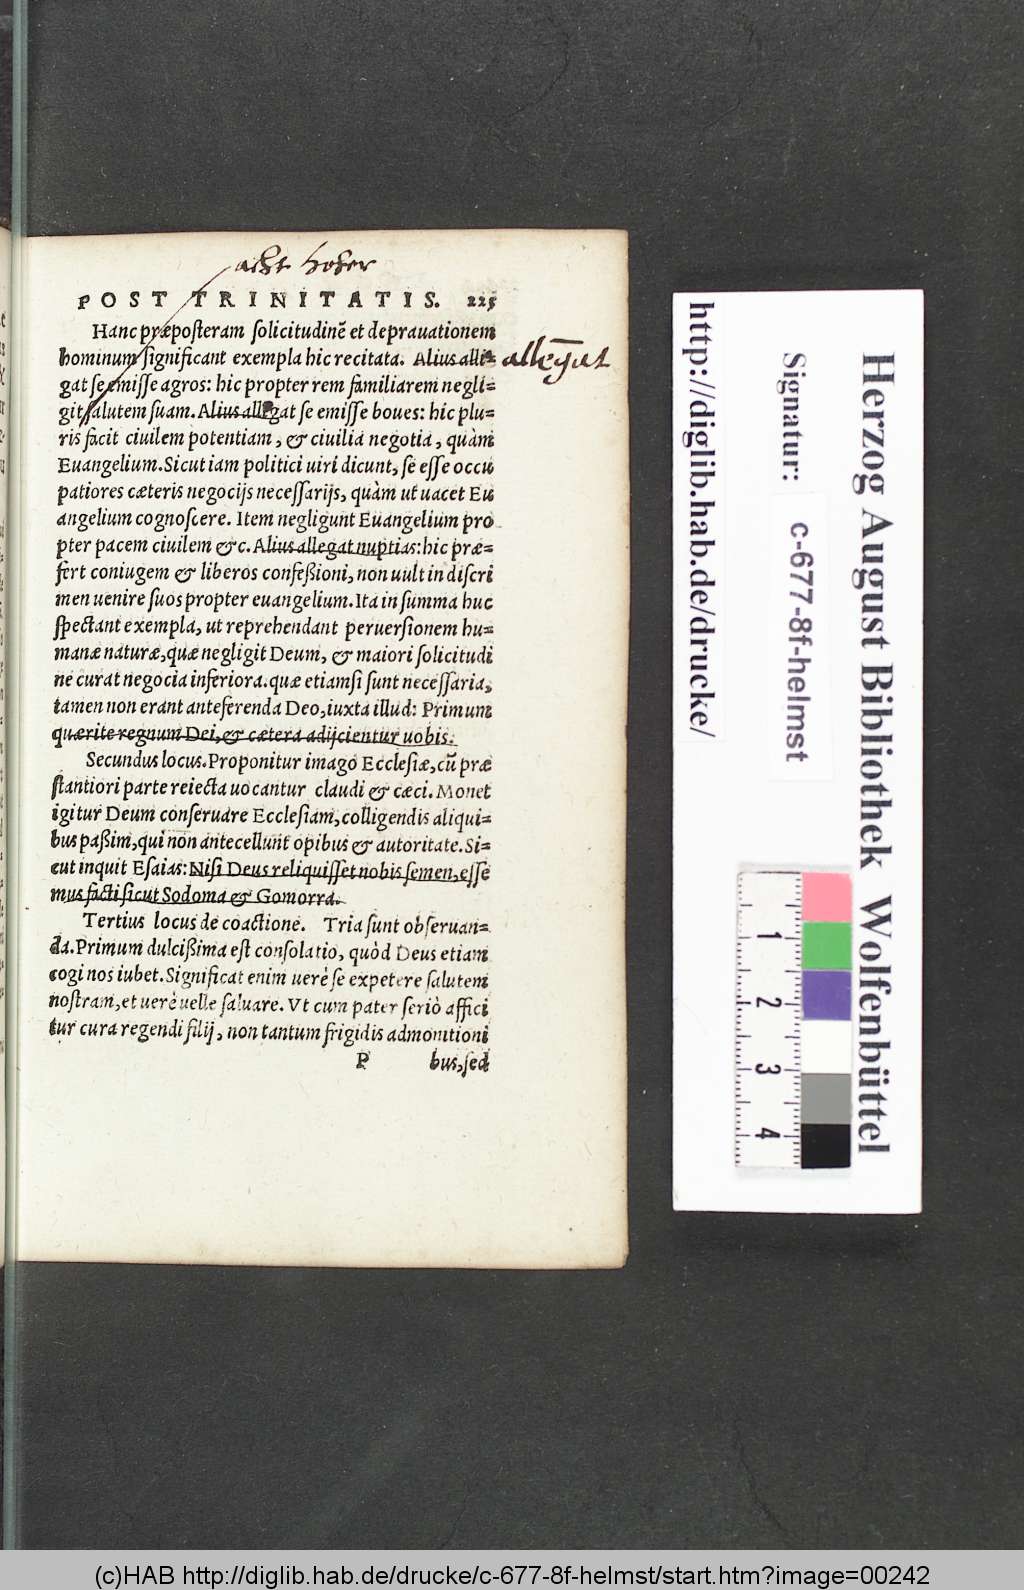 acht hofer
POST TRINITATIS. 225
Hanc præposteram solicitudinē et deprauationem
hominum significant exempla hic recitata. Alius alli=
allegat
gat se emisse agros: hic propter rem familiarem negli=
git salutem suam. Alius allegat se emisse boues: hic plu=
ris facit ciuilem potentiam, & ciuilia negotia, quàm
Euangelium. Sicut iam politici uiri dicunt, se esse occu
patiores cæteris negocijs necessarijs, quàm ut uacet Eu
angelium cognoscere. Item negligunt Euangelium pro
pter pacem ciuilem &c. Alius allegat nuptias: hic præ=
fert coniugem & liberos confeßioni, non uult in discri
men uenire suos propter euangelium. Ita in summa huc
spectant exempla, ut reprehendant peruersionem hu=
manæ naturæ, quæ negligit Deum, & maiori solicitudi
ne curat negocia inferiora. quæ etiamsi sunt necessaria,
tamen non erant anteferenda Deo, iuxta illud: Primum
quærite regnum Dei, & cætera adijcientur uobis.
Secundus locus. Proponitur imago Ecclesiæ, cū præ
stantiori parte reiecta uocantur claudi & cæci. Monet
igitur Deum conseruare Ecclesiam, colligendis aliqui=
bus paßim, qui non antecellunt opibus & autoritate. Si=
cut inquit Esaias: Nisi Deus reliquisset nobis semen, esse
mus facti sicut Sodoma & Gomorra.
Tertius locus de coactione. Tria sunt obseruan=
da. Primum dulcißima est consolatio, quòd Deus etiam
cogi nos iubet. Significat enim uerè se expetere salutem
nostram, et uerè uelle saluare. Vt cum pater seriò affici
tur cura regendi filij, non tantum frigidis admonitioni
P bus, sed
http://diglib.hab.de/drucke/
Signatur: c-677-8f-helmst
Herzog August Bibliothek Wolfenbüttel
1 2 3 4
(c)HAB http://diglib.hab.de/drucke/c-677-8f-helmst/start.htm?image=00242